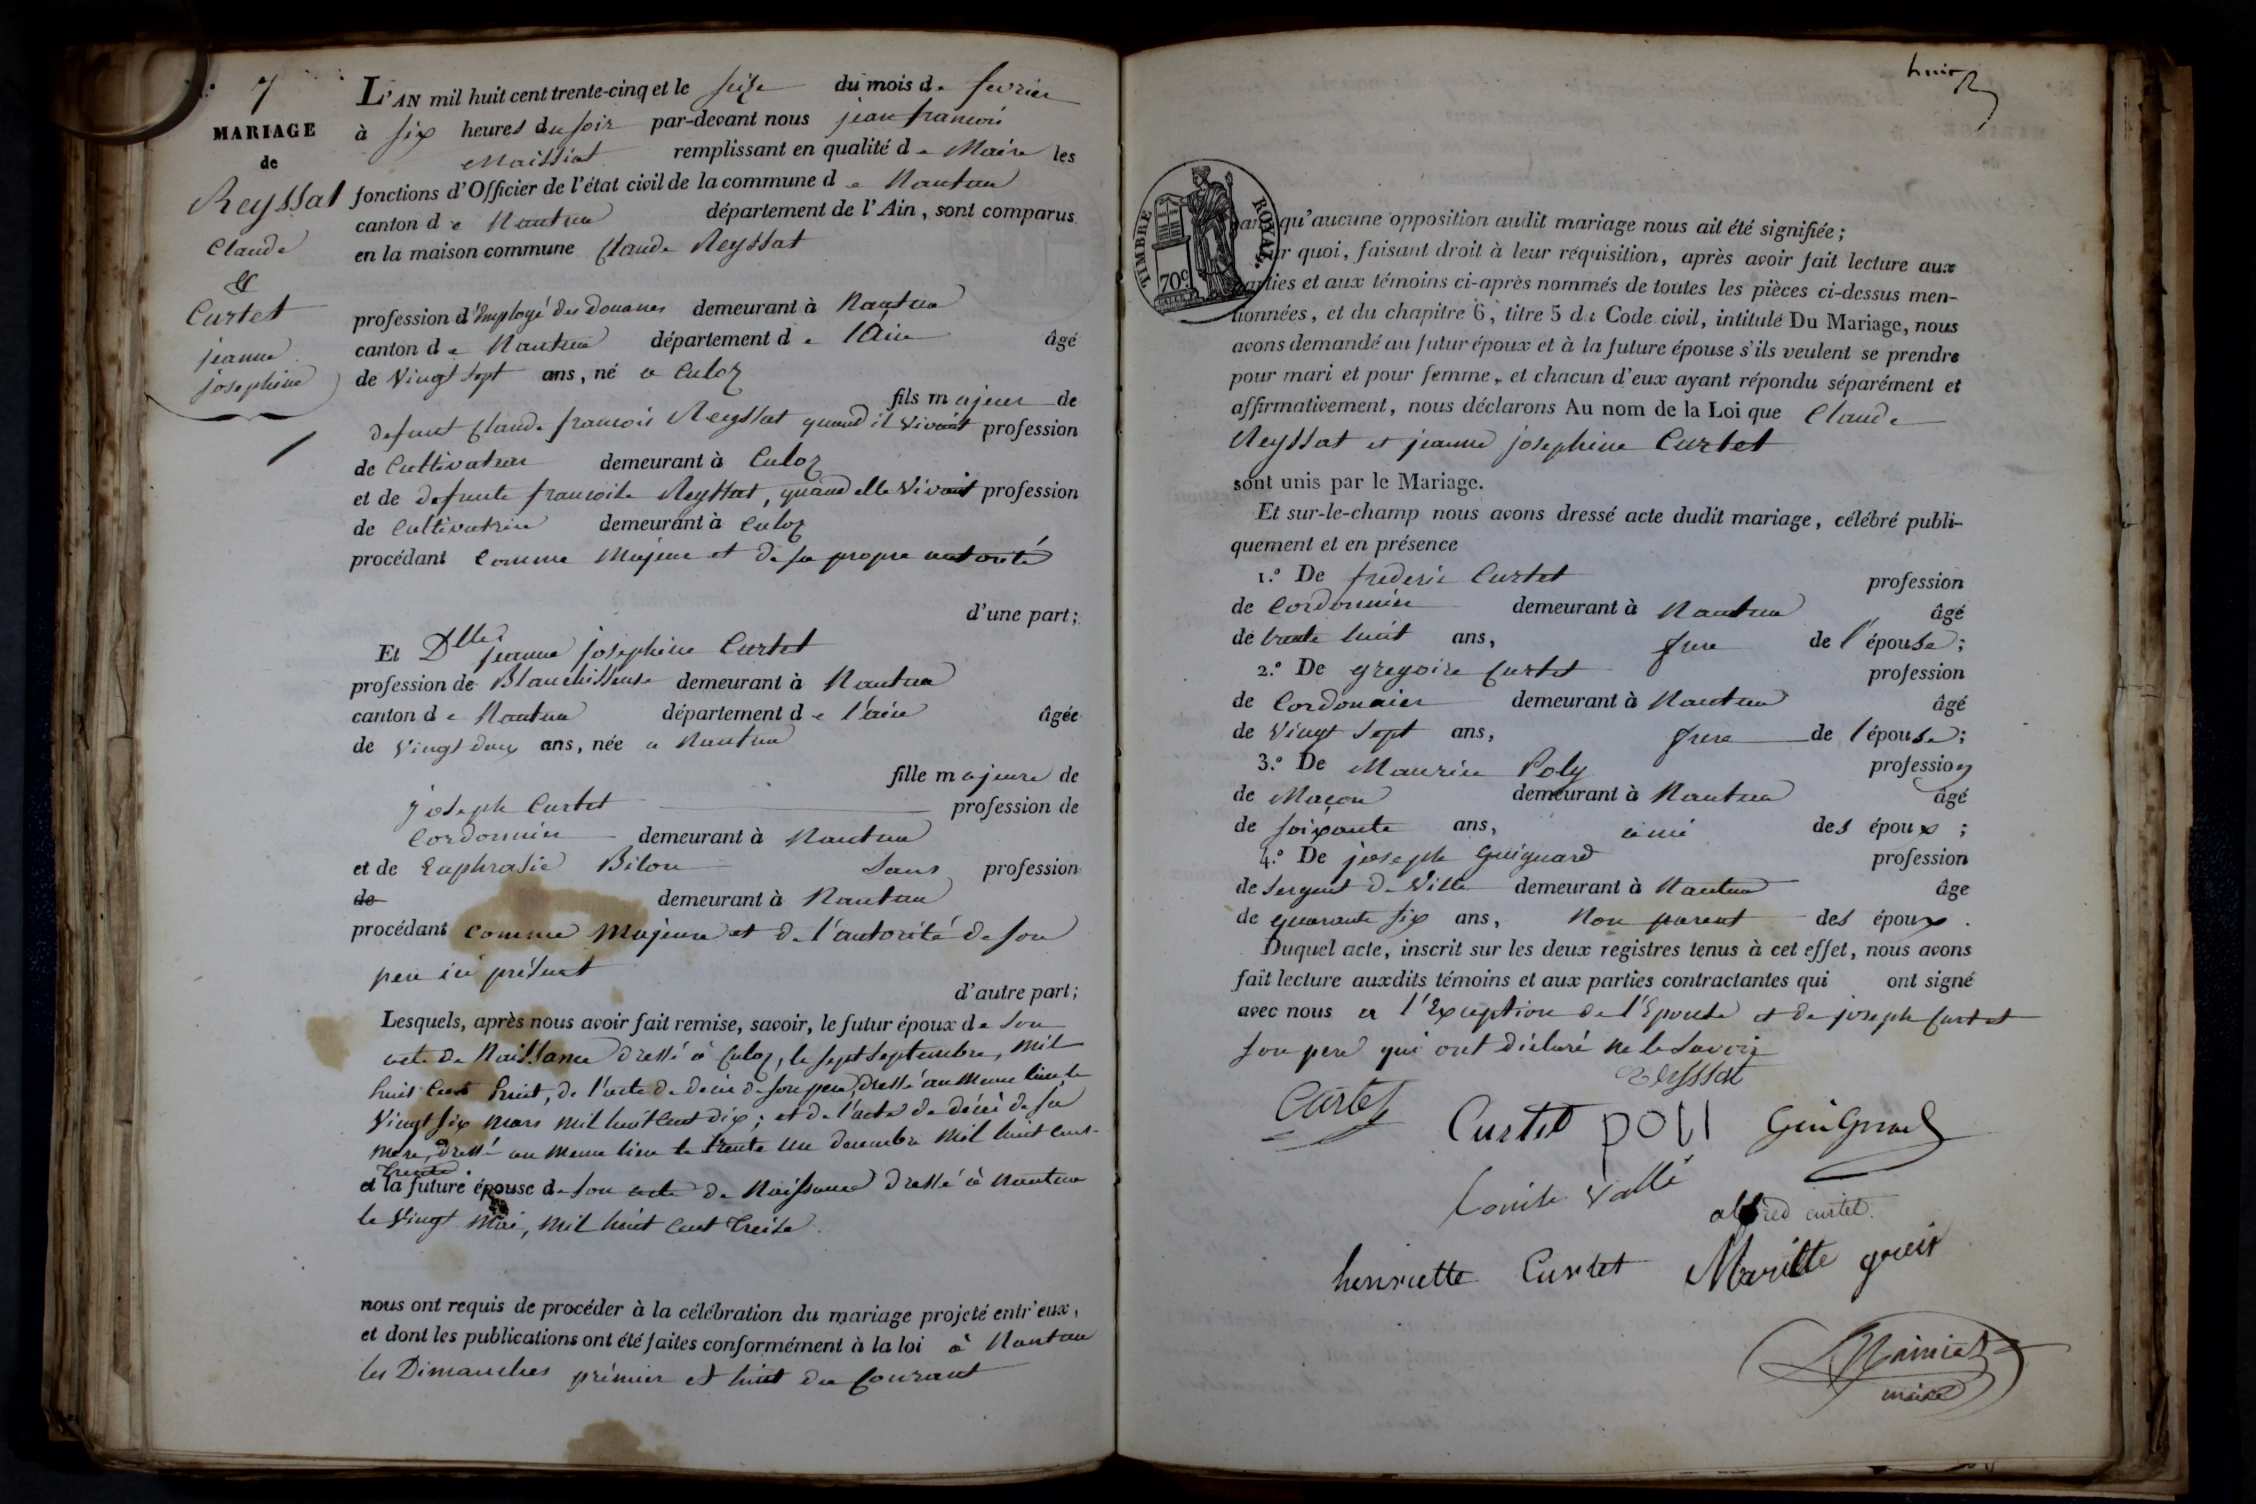 7
MARIAGE
de
Reyssat
Claude
&
Curtet
jeanne
josephine
L'AN mil huit cent trente-cinq et le seize du mois de fevrier
à six heures du soir par-devant nous jean francois
Maissiat remplissant en qualité de Maire les
fonctions d'Officier de l'état civil de la commune de Nantua
canton de Nantua département de l'Ain, sont comparus
en la maison commune Claude Reyssat
profession d'Employé des Douanes demeurant à Nantua
canton de Nantua département de l'Ain âgé
de Vingt sept ans, né a Culoz
fils majeur de
defunt Claude francois Reyssat quand il vivait profession
de Cultivateur demeurant à Culoz
et de defunte francoise Reyssat, quand elle vivait profession
de Cultivatrice demeurant à Culoz
procédant Comme Majeur et de sa propre autorité
d'une part;
Et Dlle jeanne josephine Curtet
profession de Blanchisseuse demeurant à Nantua
canton de Nantua département de l'ain âgée
de Vingt deux ans, née a Nantua
fille majeure de
joseph Curtet profession de
Cordonnier demeurant à Nantua
et de Euphrasie Bilon sans profession
de demeurant à Nantua
procédant Comme Majeure et de l'autorité de son
pere ici présent
d'autre part;
Lesquels, après nous avoir fait remise, savoir, le futur époux de son
acte de Naissance dressé à Culoz, le sept septembre, mil
huit cent huit, de l'acte de décès de son pere, dressé au meme lieu le
Vingt six mars mil huit cent dix; et de l'acte de décès de sa
mere, dressé au meme lieu le trente un decembre mil huit cent
trente.
et la future épouse de son acte de Naissance dressé à Nantua
le Vingt Mai, mil huit cent treize.
nous ont requis de procéder à la célébration du mariage projeté entr'eux,
et dont les publications ont été faites conformément à la loi à Nantua
les Dimanches prémier et huit du Courant
huit
TIMBRE ROYAL.
70c
sans qu'aucune opposition audit mariage nous ait été signifiée;
Sur quoi, faisant droit à leur réquisition, après avoir fait lecture aux
parties et aux témoins ci-après nommés de toutes les pièces ci-dessus men-
tionnées, et du chapitre 6, titre 5 du Code civil, intitulé Du Mariage, nous
avons demandé au futur époux et à la future épouse s'ils veulent se prendre
pour mari et pour femme, et chacun d'eux ayant répondu séparément et
affirmativement, nous déclarons Au nom de la Loi que Claude
Reyssat et jeanne josephine Curtet
sont unis par le Mariage.
Et sur-le-champ nous avons dressé acte dudit mariage, célébré publi-
quement et en présence
1.° De frederic Curtet profession
de Cordonnier demeurant à Nantua âgé
de trente huit ans, frere de l'épouse;
2.° De gregoire Curtet profession
de Cordonnier demeurant à Nantua âgé
de Vingt sept ans, frere de l'épouse;
3.° De Maurice Poly profession
de Maçon demeurant à Nantua âgé
de soixante ans, ami des époux;
4.° De joseph Guignard profession
de Sergent de Ville demeurant à Nantua âgé
de quarante six ans, Non parent des époux.
Duquel acte, inscrit sur les deux registres tenus à cet effet, nous avons
fait lecture auxdits témoins et aux parties contractantes qui ont signé
avec nous a l'Exception de l'Epouse et de joseph Curtet
son pere qui ont déclaré ne le savoir
Reyssat
Curtet Curtet poli Guignard
Vallé
alfred curtet.
henriette Curtet Mariette
Maissiat
maire